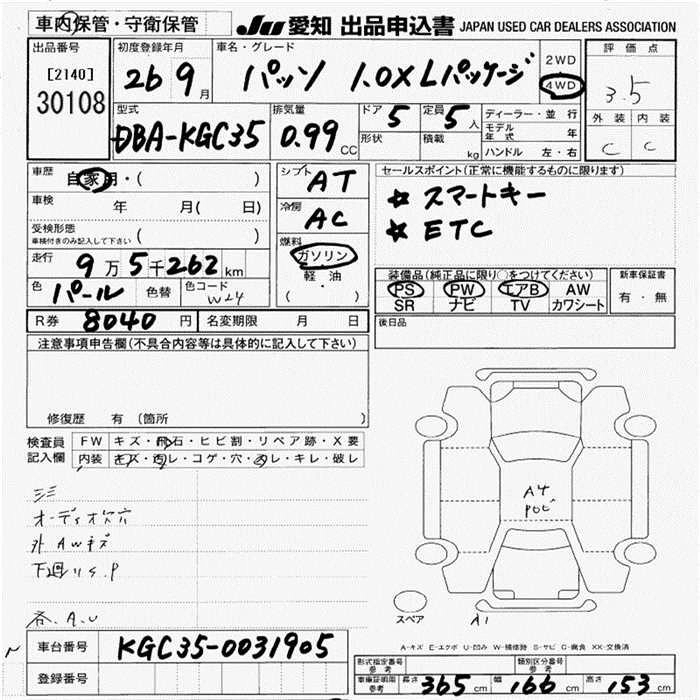 車内保管・守衛保管
JU 愛知 出品申込書 JAPAN USED CAR DEALERS ASSOCIATION
出品番号
[2140]
30108
初度登録年月
26 9月
車名・グレード
パッソ 1.0X Lパッケージ
2WD
4WD
評価点
3.5
外装 内装
C C
型式
DBA-KGC35
排気量
0.99 CC
ドア 5
形状
定員 5人
積載 kg
ディーラー・並行
モデル年式 年
ハンドル 左・右
車歴 自家用・( )
車検 年 月( 日)
受検形態
車検付きのみ記入して下さい ( )
走行 9万5千262km
色 パール 色替 色コード W24
シフト AT
冷房 AC
燃料
ガソリン
軽・油
( )
セールスポイント(正常に機能するものに限ります)
☆ スマートキー
☆ ETC
装備品(純正品に限り○をつけてください)
PS PW エアB AW
SR ナビ TV カワシート
新車保証書
有・無
R券 8040円 名変期限 月 日
後日品
注意事項申告欄(不具合内容等は具体的に記入して下さい)
修復歴 有 (箇所 )
検査員記入欄
FW キズ・飛石・ヒビ割・リペア跡・X要
内装 キズ・汚レ・コゲ・穴・スレ・キレ・破レ
三三
オーディオ欠穴
外 AWキズ
下廻りS.P
各.A.U
A4
POC
スペア
A1
A-キズ E-エクボ U-凹み W-補修跡 S-サビ C-腐食 XX-交換済
車台番号 KGC35-0031905
登録番号
型式指定番号 参考
類別区分番号 参考
車庫証明用 参考 長さ 365cm 幅 166cm 高さ 153cm